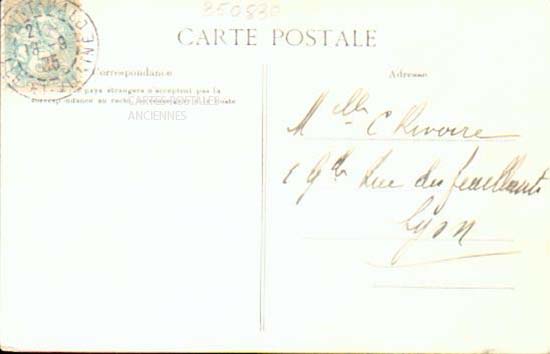 350830
CARTE POSTALE
Correspondance
pays étrangers n'acceptent pas la
correspondance au recto
CARTES POSTALES
ANCIENNES
Adresse
Melle C Rivoire
Gde Rue des feuillants
Lyon